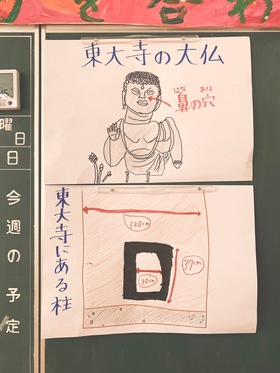 を合わ
東大寺の大仏
はな あな
鼻の穴
曜
日
日
今週の予定
東大寺にある柱
120cm
37cm
30cm